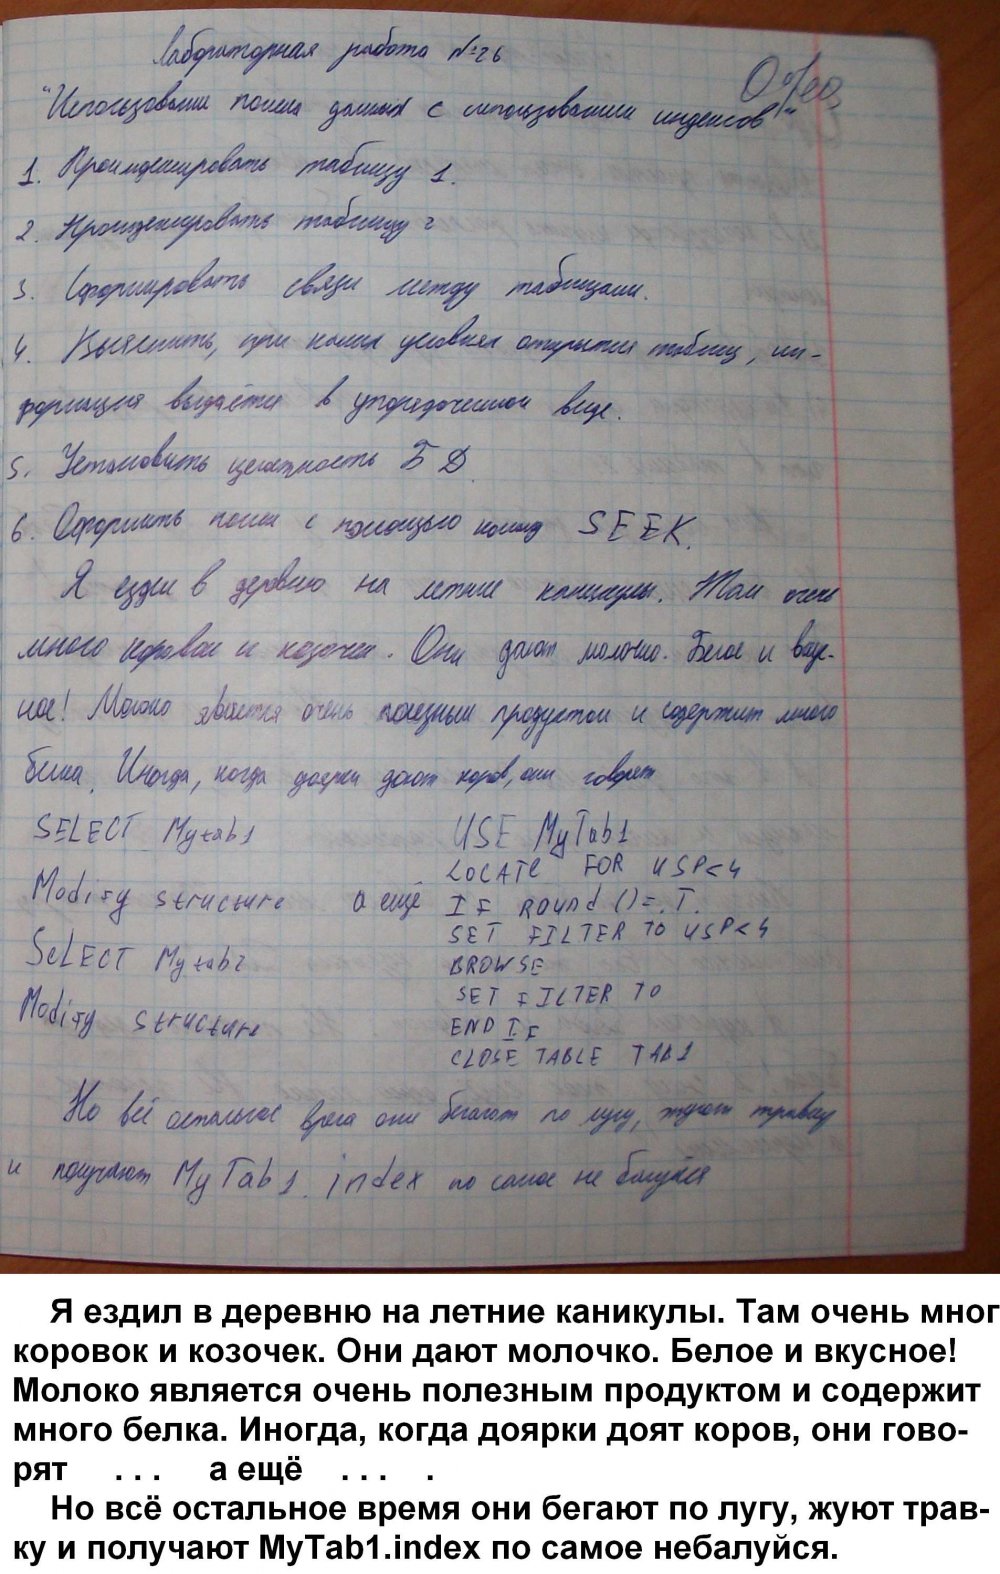 Лабораторная работа №26
"Использование поиска данных с использованием индексов"
1. Проиндексировать таблицу 1.
2. Проиндексировать таблицу 2
3. Сформировать связи между таблицами.
4. Выяснить, при каких условиях открытия таблиц, ин-
формация выдаётся в упорядоченном виде.
5. Установить целостность БД
6. Оформить поиск с помощью команд SEEK.
Я ездил в деревню на летние каникулы. Там очень
много коровок и козочек. Они дают молочко. Белое и вкус-
ное! Молоко является очень полезным продуктом и содержит много
белка. Иногда, когда доярки доят коров, они говорят
SELECT Mytab1
Modify structure а ещё
SELECT Mytab2
Modify structure
USE MyTab1
LOCATE FOR USP<4
IF ROUND()=.T.
SET FILTER TO USP<4
BROWSE
SET FILTER TO
END IF
CLOSE TABLE TAB1
Но всё остальное время они бегают по лугу, жуют травку
и получают MyTab1.index по самое не балуйся
Я ездил в деревню на летние каникулы. Там очень мног
коровок и козочек. Они дают молочко. Белое и вкусное!
Молоко является очень полезным продуктом и содержит
много белка. Иногда, когда доярки доят коров, они гово-
рят . . . а ещё . . . .
Но всё остальное время они бегают по лугу, жуют трав-
ку и получают MyTab1.index по самое небалуйся.